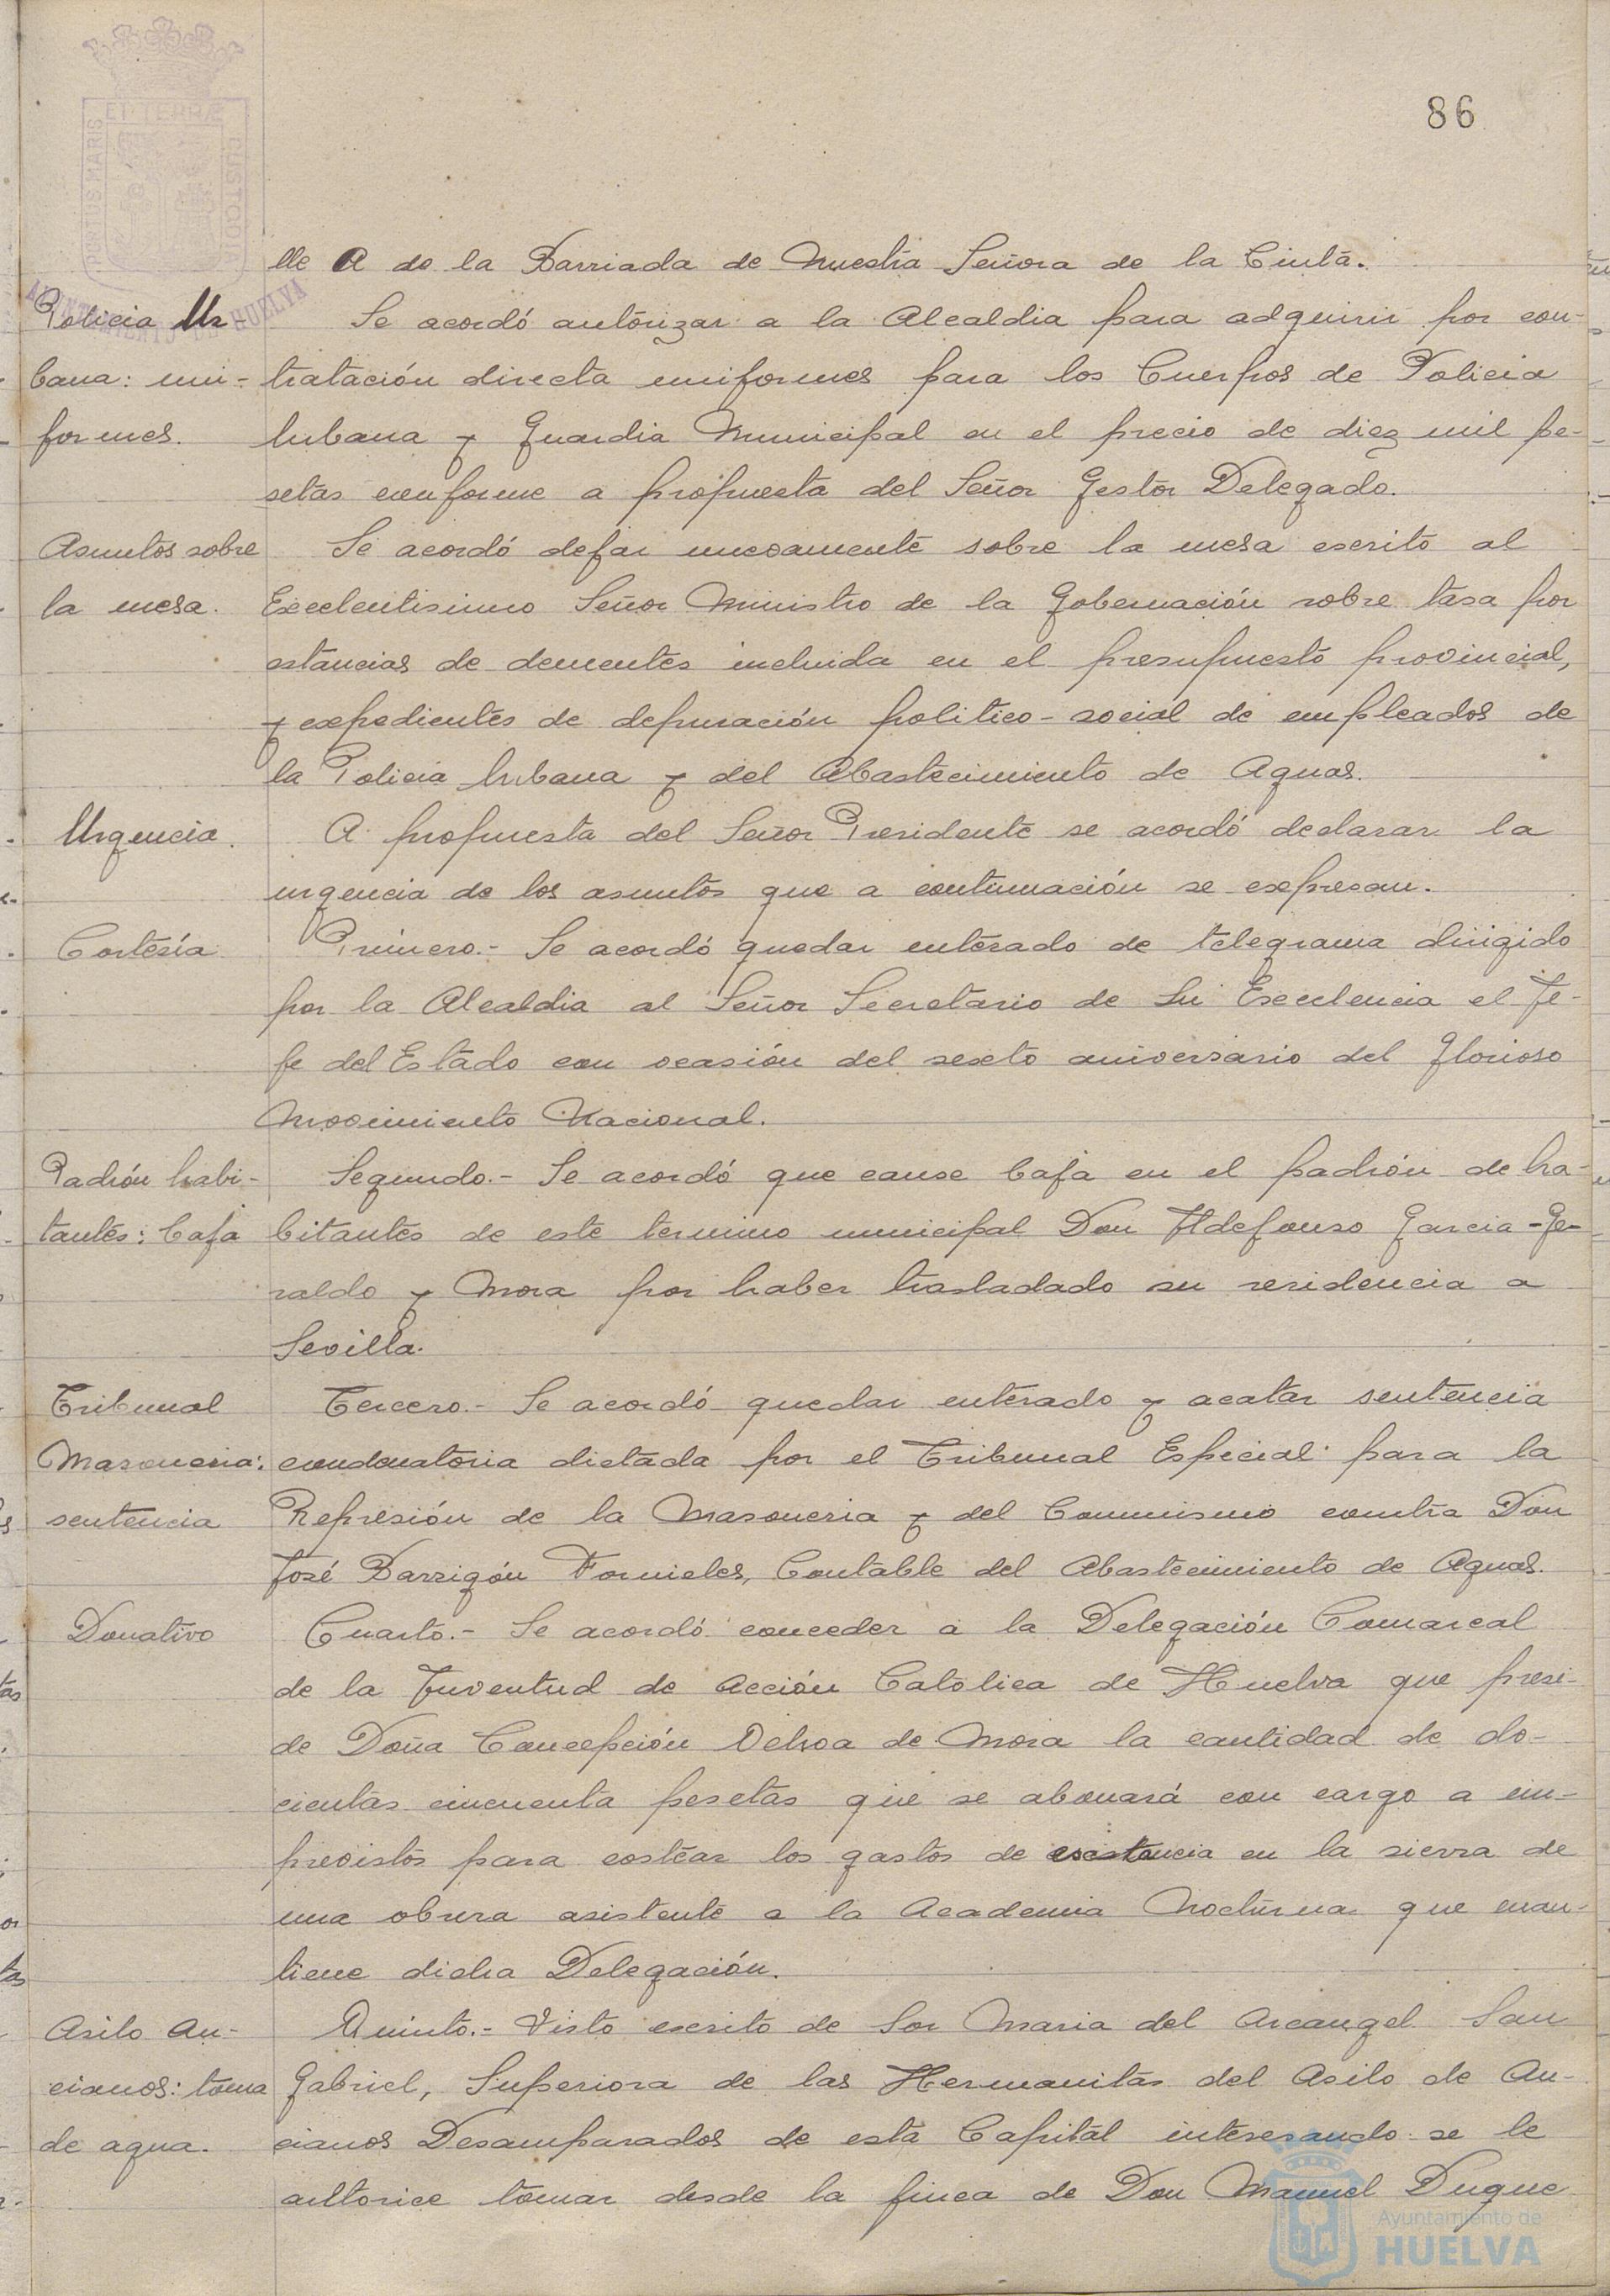 86
PORTUS MARIS
ET TERRÆ
CUSTODIA
AYUNTAMIENTO DE HUELVA
lle A de la Barriada de Nuestra Señora de la Cinta.
Policia Ur-
Se acordó autorizar a la Alcaldia para adquirir por con-
bana: uni-
tratación directa uniformes para los Cuerpos de Policia
formes.
Urbana y Guardia Municipal en el precio de diez mil pe-
setas conforme a propuesta del Señor Gestor Delegado.
Asuntos sobre
Se acordó dejar nuevamente sobre la mesa escrito al
la mesa.
Excelentisimo Señor Ministro de la Gobernación sobre tasa por
estancias de dementes incluida en el presupuesto provincial,
y expedientes de depuración politico-social de empleados de
la Policia Urbana y del Abastecimiento de Aguas.
Urgencia.
A propuesta del Señor Presidente se acordó declarar la
urgencia de los asuntos que a continuación se expresan.
Cortesía
Primero.- Se acordó quedar enterado de telegrama dirigido
por la Alcaldia al Señor Secretario de Su Excelencia el Je-
fe del Estado con ocasión del sexto aniversario del Glorioso
Movimiento Nacional.
Padrón habi-
Segundo.- Se acordó que cause baja en el padrón de ha-
tantes: baja
bitantes de este término municipal Don Ildefonso Garcia-Ge-
raldo y Mora por haber trasladado su residencia a
Sevilla.
Tribunal
Tercero.- Se acordó quedar enterado y acatar sentencia
Masoneria:
condenatoria dictada por el Tribunal Especial para la
sentencia
Represión de la Masoneria y del Comunismo contra Don
José Barrigón Fornieles, Contable del Abastecimiento de Aguas.
Donativo
Cuarto.- Se acordó conceder a la Delegación Comarcal
de la Juventud de Acción Católica de Huelva que presi-
de Doña Concepción Ochoa de Mora la cantidad de do-
cientas cincuenta pesetas que se abonará con cargo a im-
previstos para costear los gastos de estancia en la sierra de
una obrera asistente a la Academia Nocturna que man-
tiene dicha Delegación.
Asilo An-
Quinto.- Visto escrito de Sor Maria del Arcangel San
cianos: toma
Gabriel, Superiora de las Hermanitas del Asilo de An-
de agua.
cianos Desamparados de esta Capital interesando se le
autorice tomar desde la finca de Don Manuel Duque
Ayuntamiento de
HUELVA